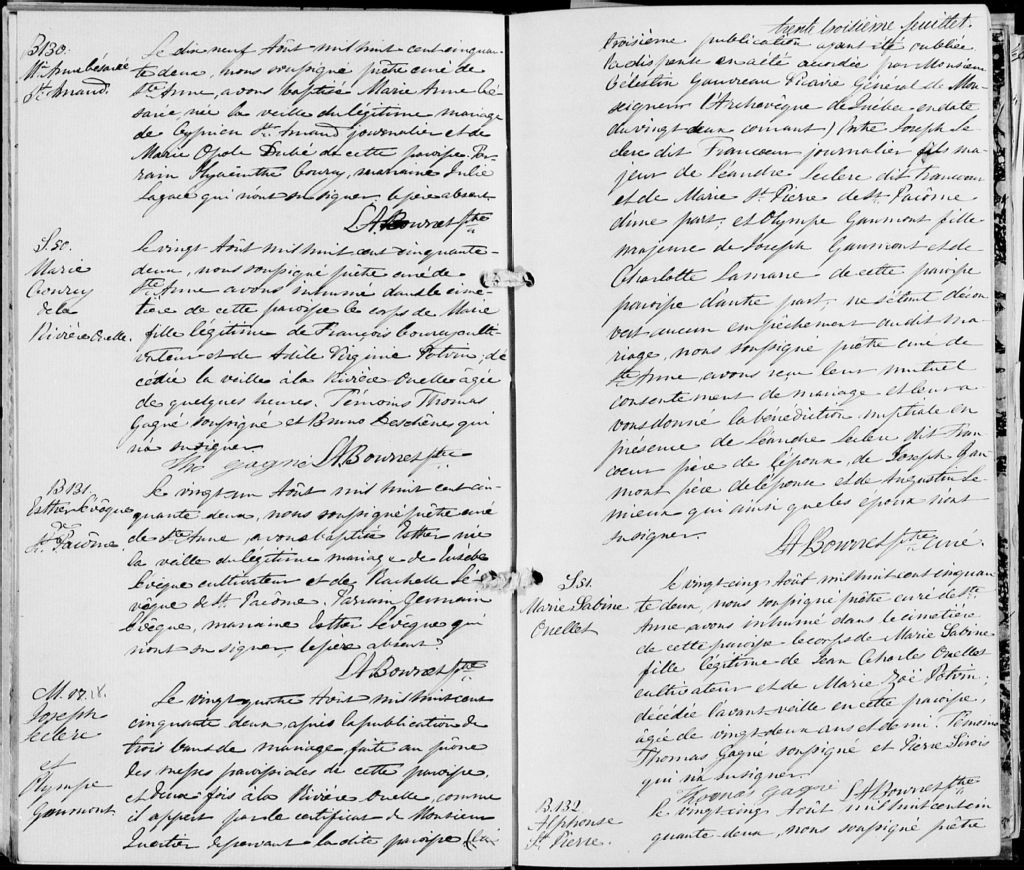 B130.
Me. Anne bésarée
St. Amand.
Le dix neuf Août mil huit cent cinquan-
te deux, nous soussigné prêtre curé de
Ste Anne, avons baptisé Marie Anne bé-
sarie, née la veille du légitime mariage
de Cyprien St. Amand journalier et de
Marie Opole Dubé de cette paroisse. Par-
rain Hyacinthe Courcy, marraine Julie
Lagacé qui n'ont su signer. le père absent.
LA Bourret Ptre
S. 50.
Marie
Courcy
de la
Rivière Ouelle.
Le vingt Août mil huit cent cinquante-
deux, nous soussigné prêtre curé de
Ste Anne avons inhumé dans le cime-
tière de cette paroisse le corps de Marie
fille légitime de François Courcy culti-
vateur et de Adèle Virginie Potvin, dé-
cédée la veille à la Rivière Ouelle âgée
de quelques heures. Témoins Thomas
Gagné soussigné et Bruno Deschêne qui
n'a su signer.
Tho gagné LA Bourret Ptre
B 131.
Esther Lévêque
de
St. Pacôme.
Le vingt-un Août mil huit cent cin-
quante deux, nous soussigné prêtre curé
de Ste Anne, avons baptisé Esther née
la veille du légitime mariage de Eusèbe
Lévêque cultivateur et de Rachelle Lé-
vêque de St. Pacôme. Parrain Germain
Lévêque, marraine Esther Lévêque qui
n'ont su signer, le père absent.
LA Bourret Ptre
M. 17. 18.
Joseph
Leclerc
et
Olympe
Gaumont
Le vingt quatre Août mil huit cent
cinquante deux, après la publication de
trois bans de mariage, faite au prône
des messes paroissiales de cette paroisse,
et deux fois à la Rivière Ouelle, comme
il appert par le certificat de Monsieur
Quertier desservant la dite paroisse (la
trente troisième feuillet.
troisième publication ayant été oubliée
la dispense en a été accordée par Monsieur
Célestin Gauvreau Vicaire Général de Mon-
seigneur l'Archevêque de Québec en date
du vingt deux courant) Entre Joseph Le-
clerc dit Francoeur journalier fils ma-
jeur de Léandre Leclerc dit Francoeur
et de Marie St. Pierre de St. Pacôme
d'une part; et Olympe Gaumont fille
majeure de Joseph Gaumont et de
Charlotte Lamarre de cette paroisse
paroisse d'autre part; ne s'étant décou-
vert aucun empêchement au dit ma-
riage, nous soussigné prêtre curé de
Ste Anne, avons reçu leur mutuel
consentement de mariage et leur a-
vons donné la bénédiction nuptiale en
présence de Léandre Leclerc dit Fran-
coeur père de l'époux, de Joseph Gau-
mont père de l'épouse et de Augustin Le-
mieux qui ainsi que les époux n'ont
su signer.
LA Bourret Ptre curé.
S 51.
Marie Sabine
Ouellet
Le vingt-cinq Août mil huit cent cinquan-
te deux, nous soussigné prêtre curé de Ste
Anne, avons inhumé dans le cimetière
de cette paroisse le corps de Marie Sabine
fille légitime de Jean Charles Ouellet
cultivateur et de Marie Zoé Potvin;
décédée l'avant-veille en cette paroisse,
âgée de vingt-deux ans et demi. Témoins
Thomas Gagné soussigné et Pierre Sirois
qui n'a su signer.
Thomas gagné LA Bourret Ptre
B 132
Alphonse
St. Pierre.
Le vingt-cinq Août mil huit cent cin
quante deux, nous soussigné prêtre